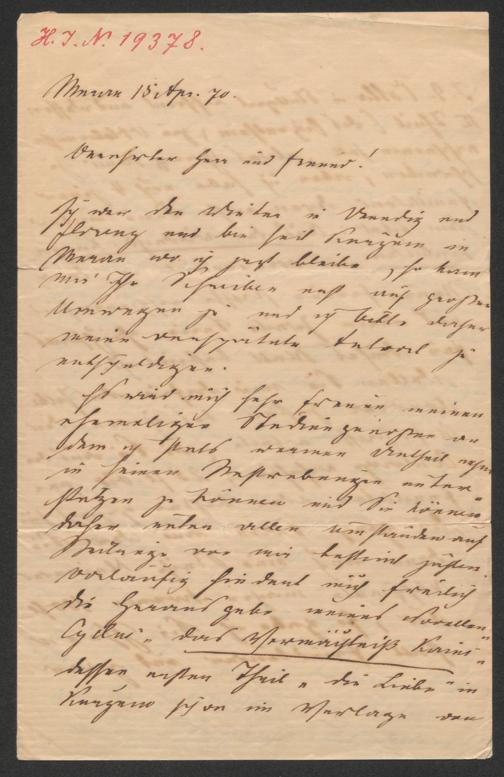 H. I. N. 19378.
Meran 15 Apr. 70.
Verehrter Herr und Freund!
Ich war den Winter in Venedig und
Florenz und bin seit Kurzem in
Meran wo ich jetzt bleibe, so kam
mir Ihr Schreiben erst auf großen
Umwegen zu und ich bitte daher
meine verspätete Antwort zu
entschuldigen.
Es wird mich sehr freuen meinen
ehemaligen Studiengenossen an
dem ich stets warmen Antheil nehme
in seinen Bestrebungen unter-
stützen zu können und Sie können
daher unter allen Umständen auf
Beiträge von mir bestimmt zählen
vorläufig hindert mich freilich
die Herausgabe meines Novellen-
Cyclus „das Vermächtniß Kains"
dessen ersten Theil „die Liebe" in
Kurzem schon im Verlage von